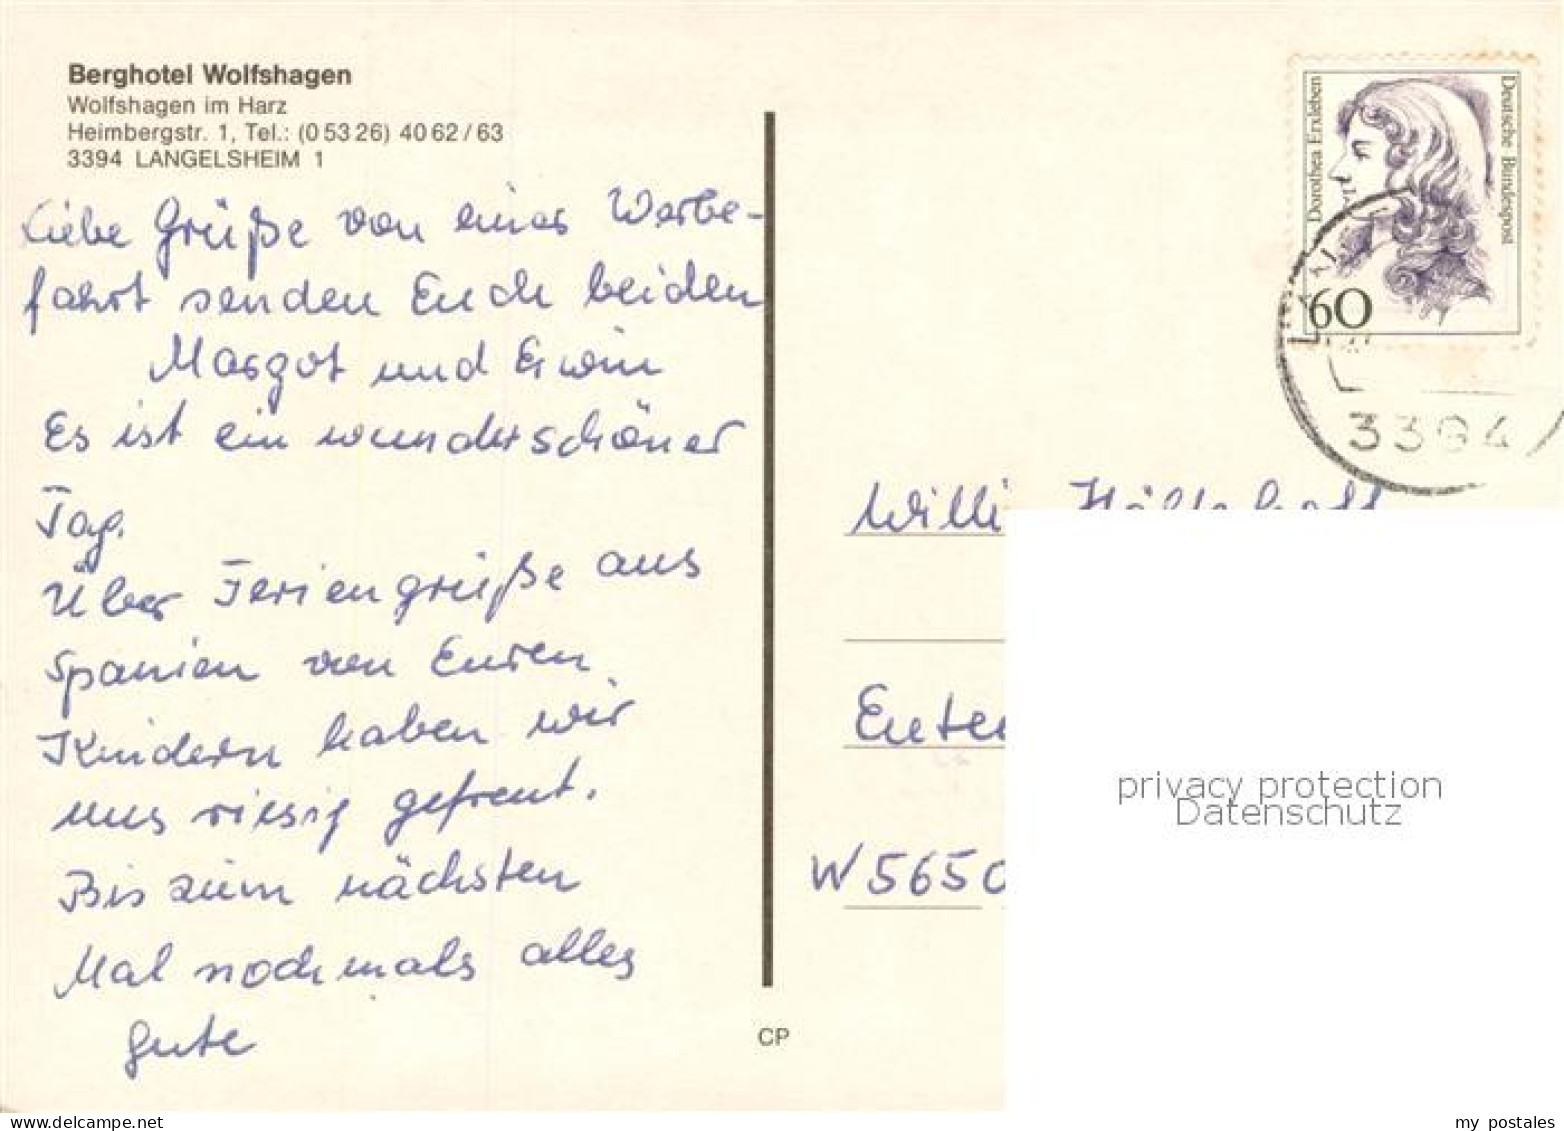 Berghotel Wolfshagen
Wolfshagen im Harz
Heimbergstr. 1, Tel.: (0 53 26) 40 62 / 63
3394 LANGELSHEIM 1
Liebe Grüße von einer Werbe-
fahrt senden Euch beiden
Margot und Erwin
Es ist ein wunderschöner
Tag.
Über Feriengrüße aus
Spanien von Euren
Kindern haben wir
uns riesig gefreut.
Bis zum nächsten
Mal nochmals alles
gute
CP
Dorothea Erxleben
Deutsche Bundespost
60
3394
Willi
W 5650
privacy protection
Datenschutz
www.delcampe.net
my_postales